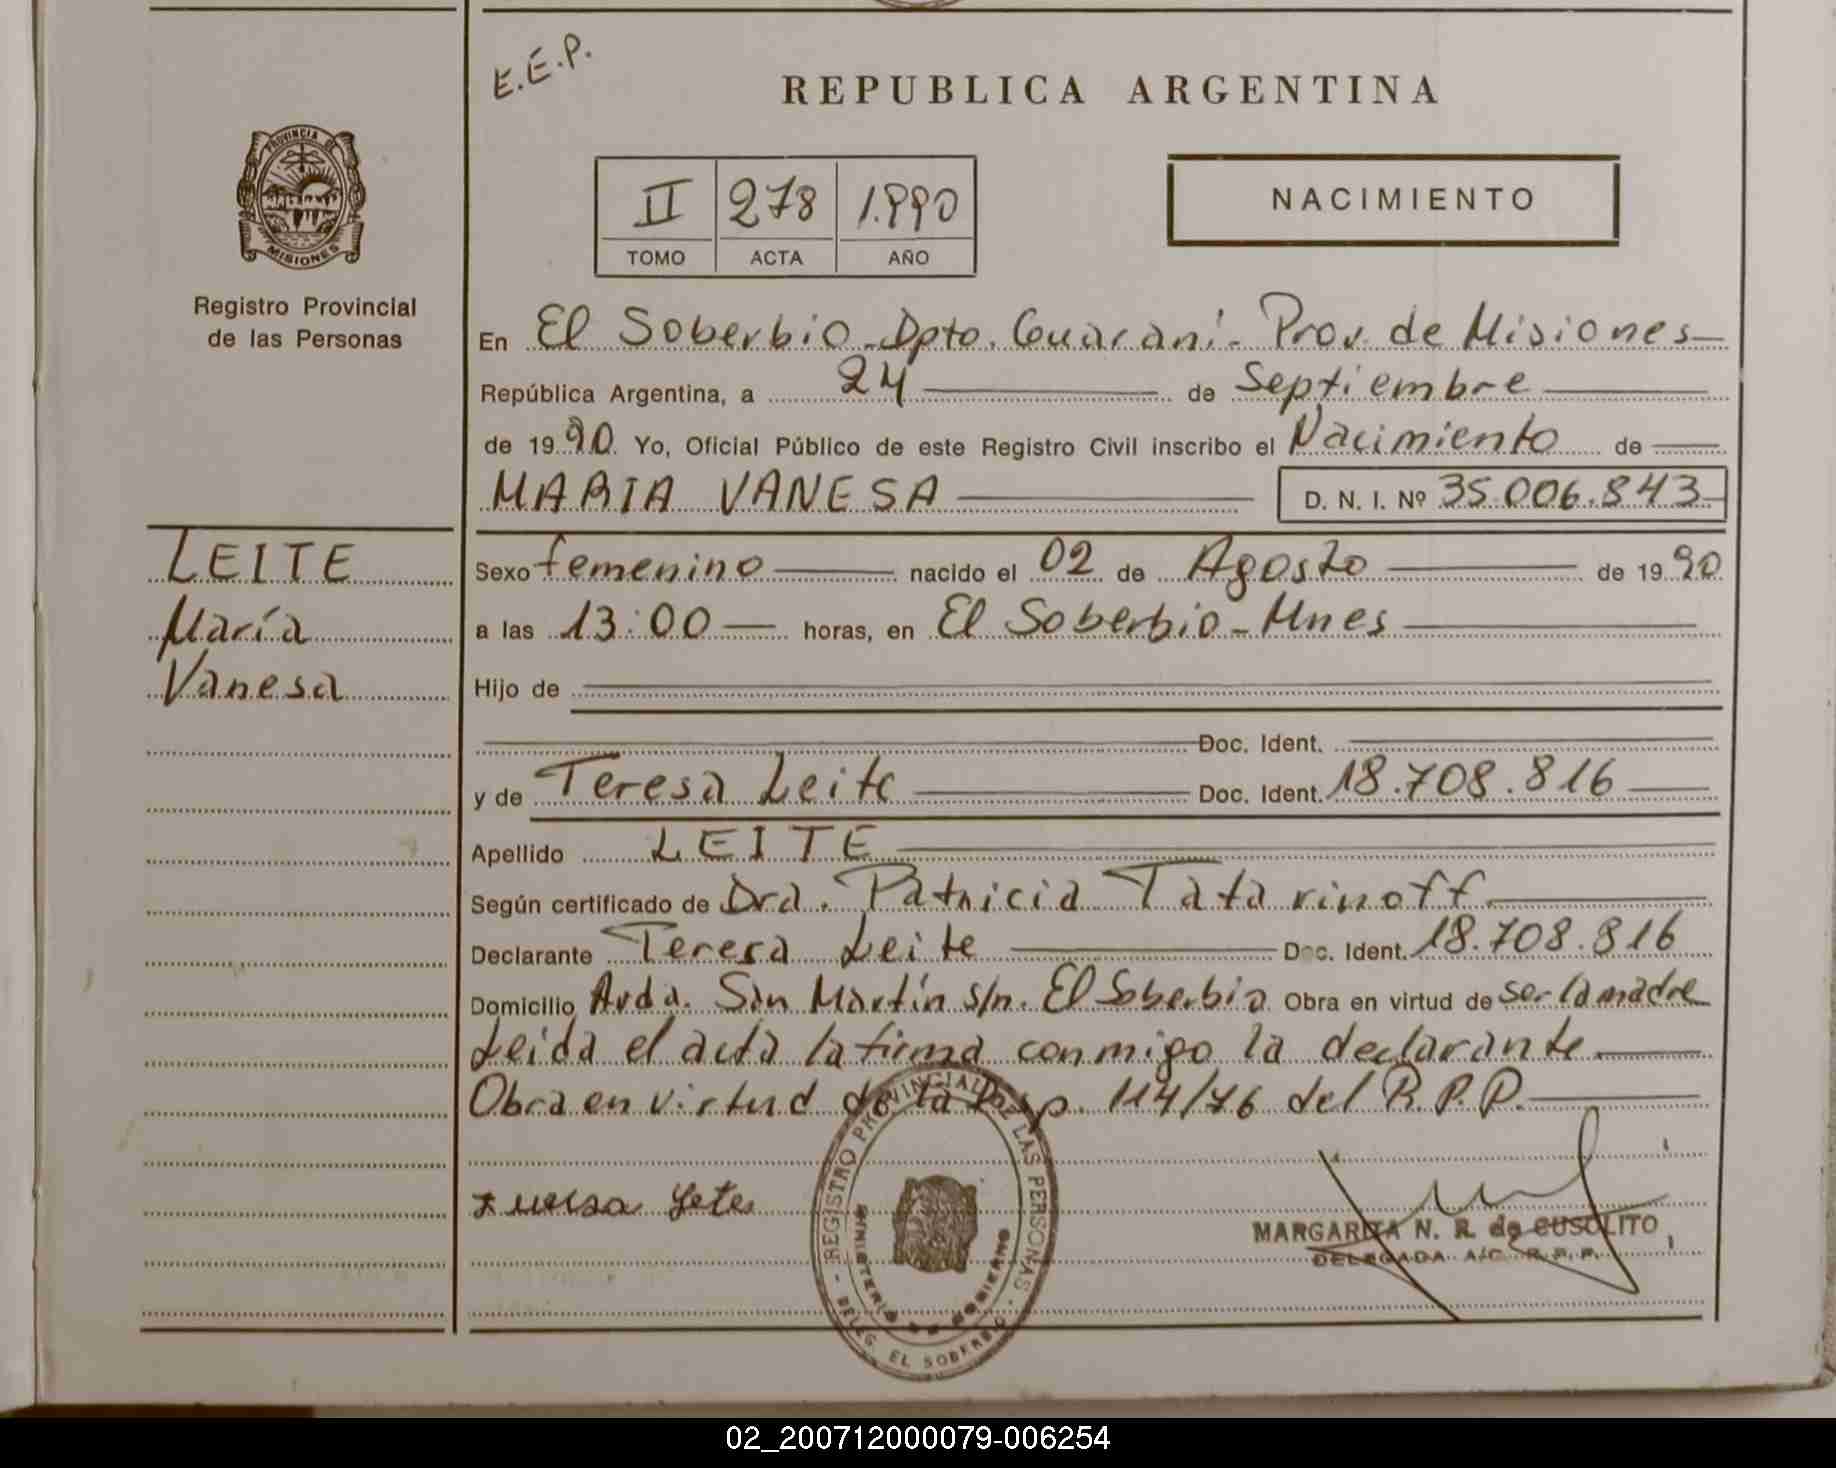 E.E.P.
REPUBLICA ARGENTINA
PROVINCIA DE
MISIONES
Registro Provincial
de las Personas
II 278 1.990
TOMO ACTA AÑO
NACIMIENTO
En El Soberbio - Dpto. Guaraní - Prov. de Misiones
República Argentina, a 24 de Septiembre
de 1990. Yo, Oficial Público de este Registro Civil inscribo el Nacimiento de
MARIA VANESA D. N. I. Nº 35.006.843
LEITE
María
Vanesa
Sexo femenino nacido el 02 de Agosto de 1990
a las 13:00 horas, en El Soberbio - Mnes
Hijo de
Doc. Ident.
y de Teresa Leite Doc. Ident. 18.708.816
Apellido LEITE
Según certificado de Dra. Patricia Tatarinoff
Declarante Teresa Leite Doc. Ident. 18.708.816
Domicilio Avda. San Martín s/n. El Soberbio Obra en virtud de ser la madre
Leída el acta la firma conmigo la declarante
Obra en virtud de la Disp. 114/76 del R.P.P.
REGISTRO PROVINCIAL DE LAS PERSONAS
MINISTERIO DE GOBIERNO
DELEG. EL SOBERBIO
MARGARITA N. R. de CUSOLITO
DELEGADA A/C R.P.P.
02_200712000079-006254